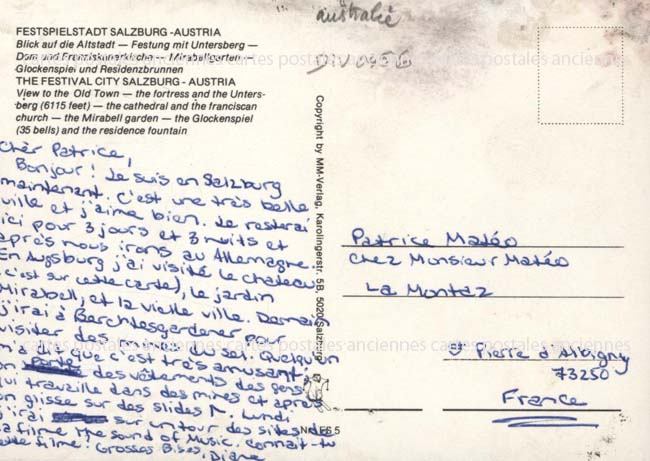 australie
FESTSPIELSTADT SALZBURG - AUSTRIA
Blick auf die Altstadt — Festung mit Untersberg —
Dom und Franziskanerkirche — Mirabellgarten —
Glockenspiel und Residenzbrunnen
THE FESTIVAL CITY SALZBURG - AUSTRIA
View to the Old Town — the fortress and the Unters-
berg (6115 feet) — the cathedral and the franciscan
church — the Mirabell garden — the Glockenspiel
(35 bells) and the residence fountain
cartes postales anciennes cartes postales anciennes
Chèr Patrice,
Bonjour! Je suis en Salzburg
maintenant. C'est une très belle
ville et j'aime bien. Je resterai
ici pour 3 jours et 3 nuits et
après nous irons au Allemagne.
En Augsburg j'ai visité le chateau
(c'est sur cette carte), le jardin
Mirabell, et la vieille ville. Demain
j'irai à Berchtesgardener pour
visiter des mines du sel. Quelqu'un
m'a dit que c'est très amusant;
on des vêtements des gens
qui travaille dans des mines et après
on glisse sur des slides Lundi
j'irai sur un tour des sites de
la filme The Sound of Music. connait-tu
cette filme? Grosses Bises, Diane
cartes postales anciennes cartes postales anciennes
Copyright by MM-Verlag, Karolingerstr. 5B, 5020 Salzburg
Patrice Matéo
Chez Monsieur Matéo
La Montaz
St Pierre d'Albigny
73250
France